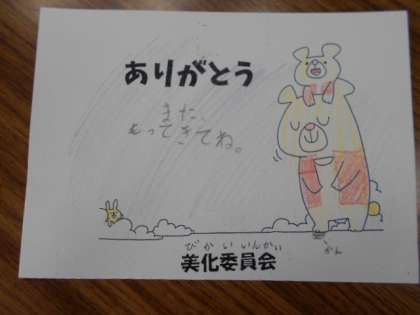 ありがとう
また、
もってきてね。
びかいいんかい
美化委員会